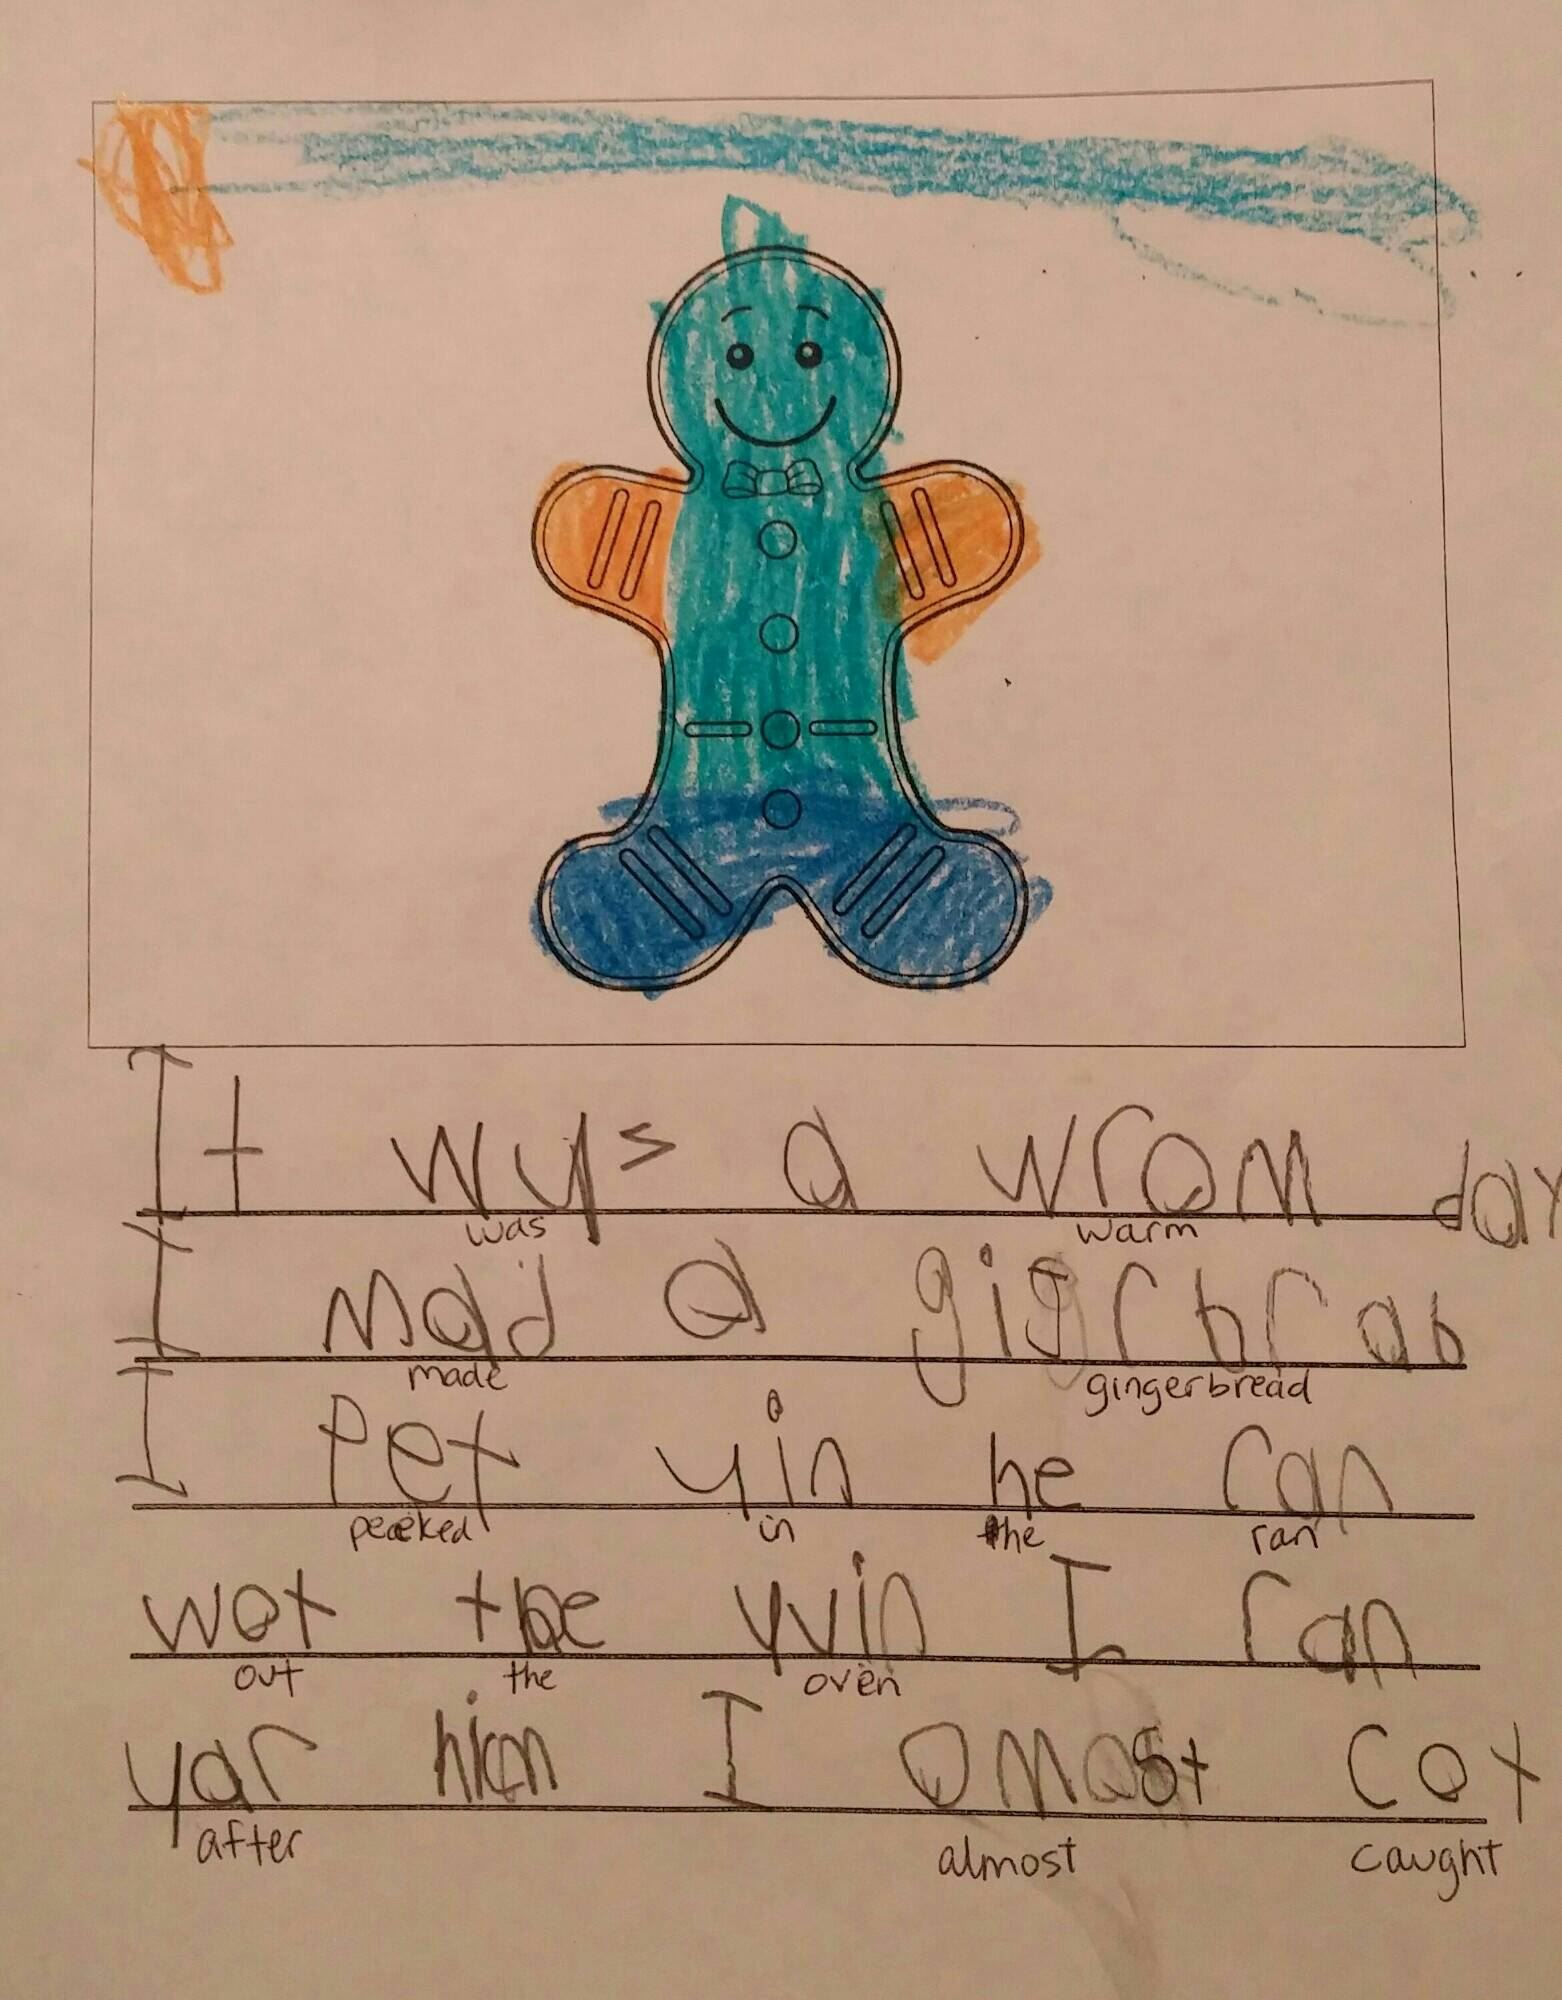 It wys a wrom day
was warm
I mad a gigrbrab
made gingerbread
I Pet yin he ran
peeked in the ran
wot the yvin I ran
out the oven
yar him I omost cot
after almost caught